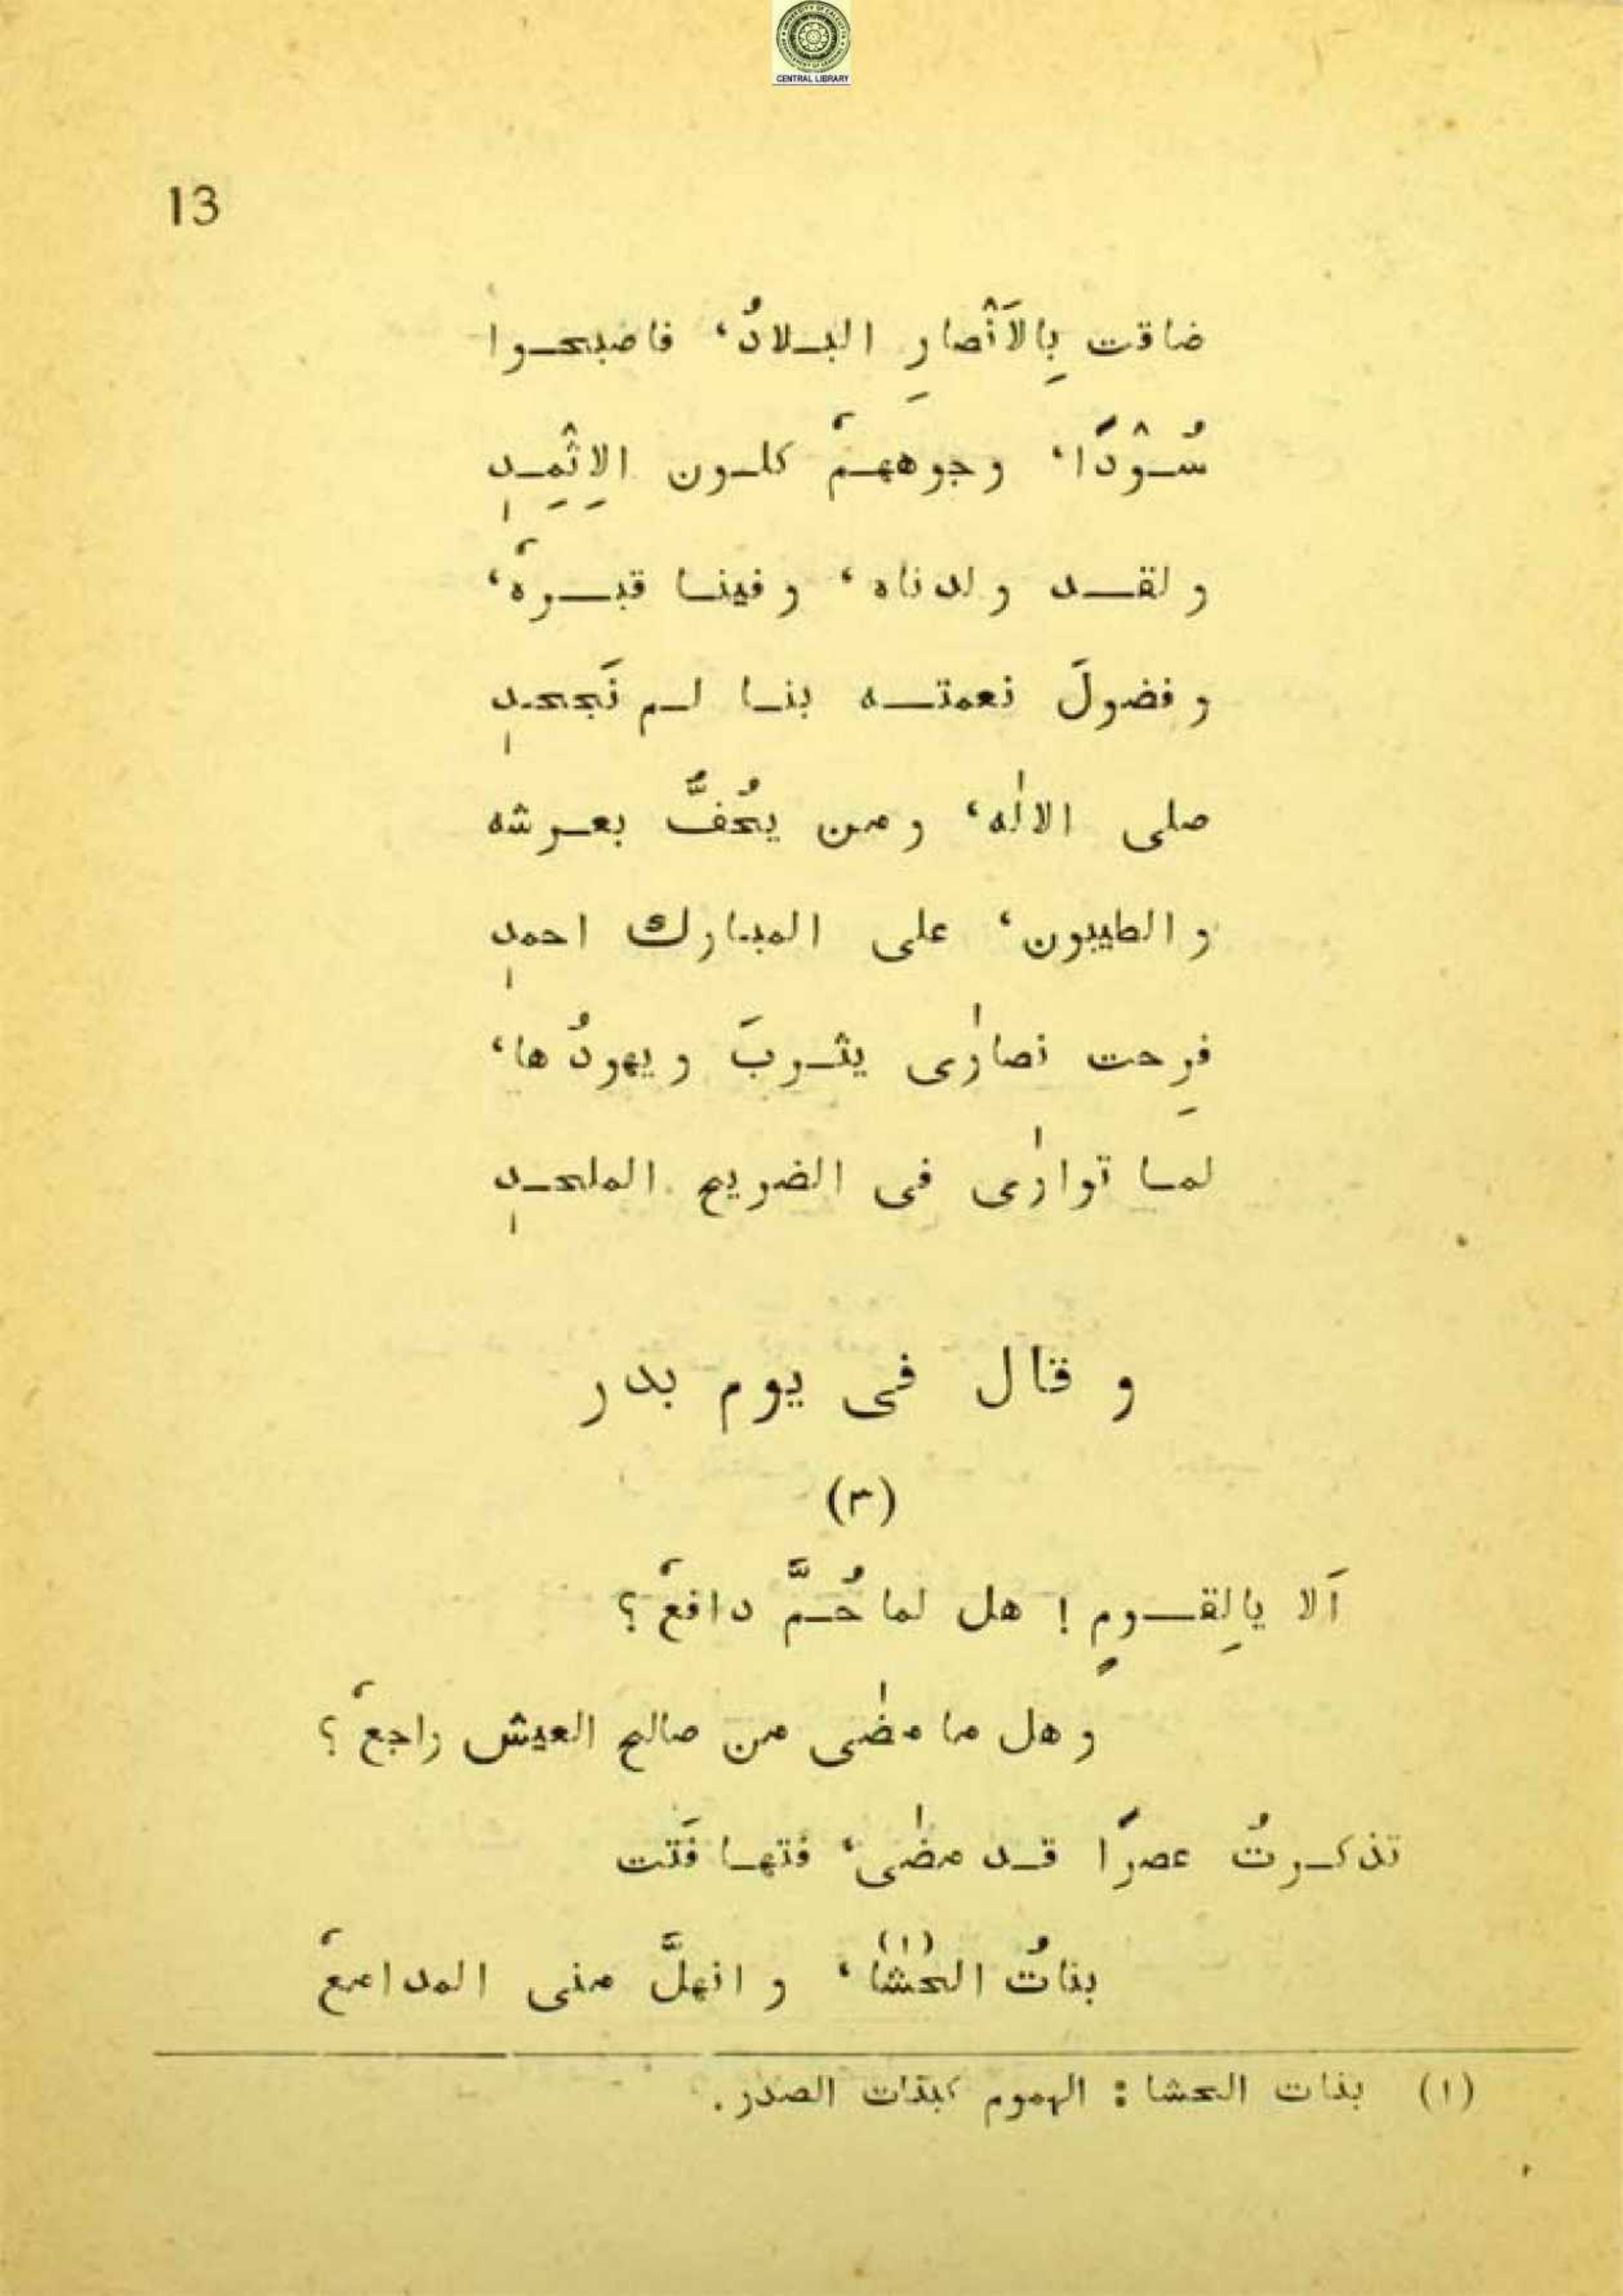 CENTRAL LIBRARY
13
ضاقت بِالَاَنْصارِ البـلادُ، فاصبحـوا
سُـوْدًا، وجوههـمْ كلـون الِاثْمِـدِ
ولقـد ولدناه، وفينـا قبـرهٗ،
وفضولَ نعمتـه بنـا لـم نَجحـدِ
صلى الالٰه، ومن يحُفُّ بعـرشه
والطيبون، على المبـارك احمدِ
فرِحت نصارٰى يثـربَ ويهودُها،
لمـا توارٰى فى الضريح الملحـدِ
و قال فى يوم بدر
(٣)
اَلا يالِقـومٍ ! هل لما حُـمَّ دافعٗ ؟
وهل ما مضٰى من صالح العيش راجعٗ ؟
تذكـرتُ عصرًا قـد مضٰى، فتهـا فَتت
بناتُ الحشٰا (١)، وانهلَّ منى المدامعٗ
(١) بنات الحشا : الهموم كبنات الصدر .